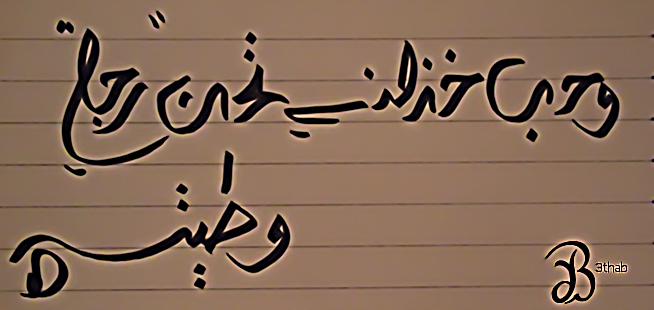 وحب خذلني تحت رجلي
وطيته
B3thab